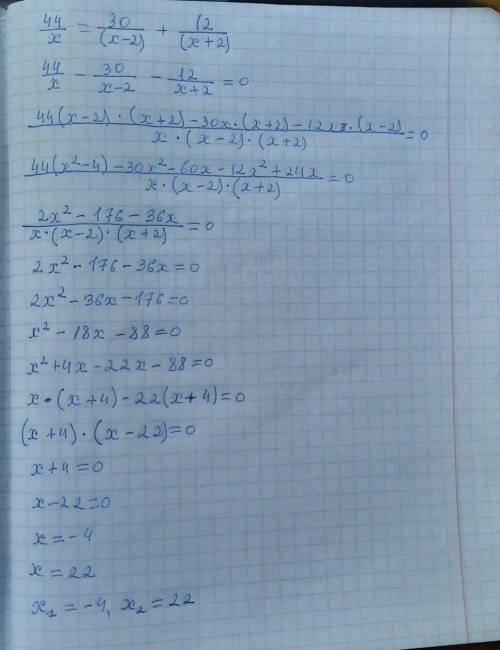 44/x = 30/(x-2) + 12/(x+2)
44/x - 30/x-2 - 12/x+2 = 0
44(x-2)·(x+2)-30x·(x+2)-12x·(x-2) / x·(x-2)·(x+2) = 0
44(x²-4)-30x²-60x-12x²+24x / x·(x-2)·(x+2) = 0
2x²-176-36x / x·(x-2)·(x+2) = 0
2x²-176-36x=0
2x²-36x-176=0
x²-18x-88=0
x²+4x-22x-88=0
x·(x+4)-22(x+4)=0
(x+4)·(x-22)=0
x+4=0
x-22=0
x=-4
x=22
x₁=-4, x₂=22